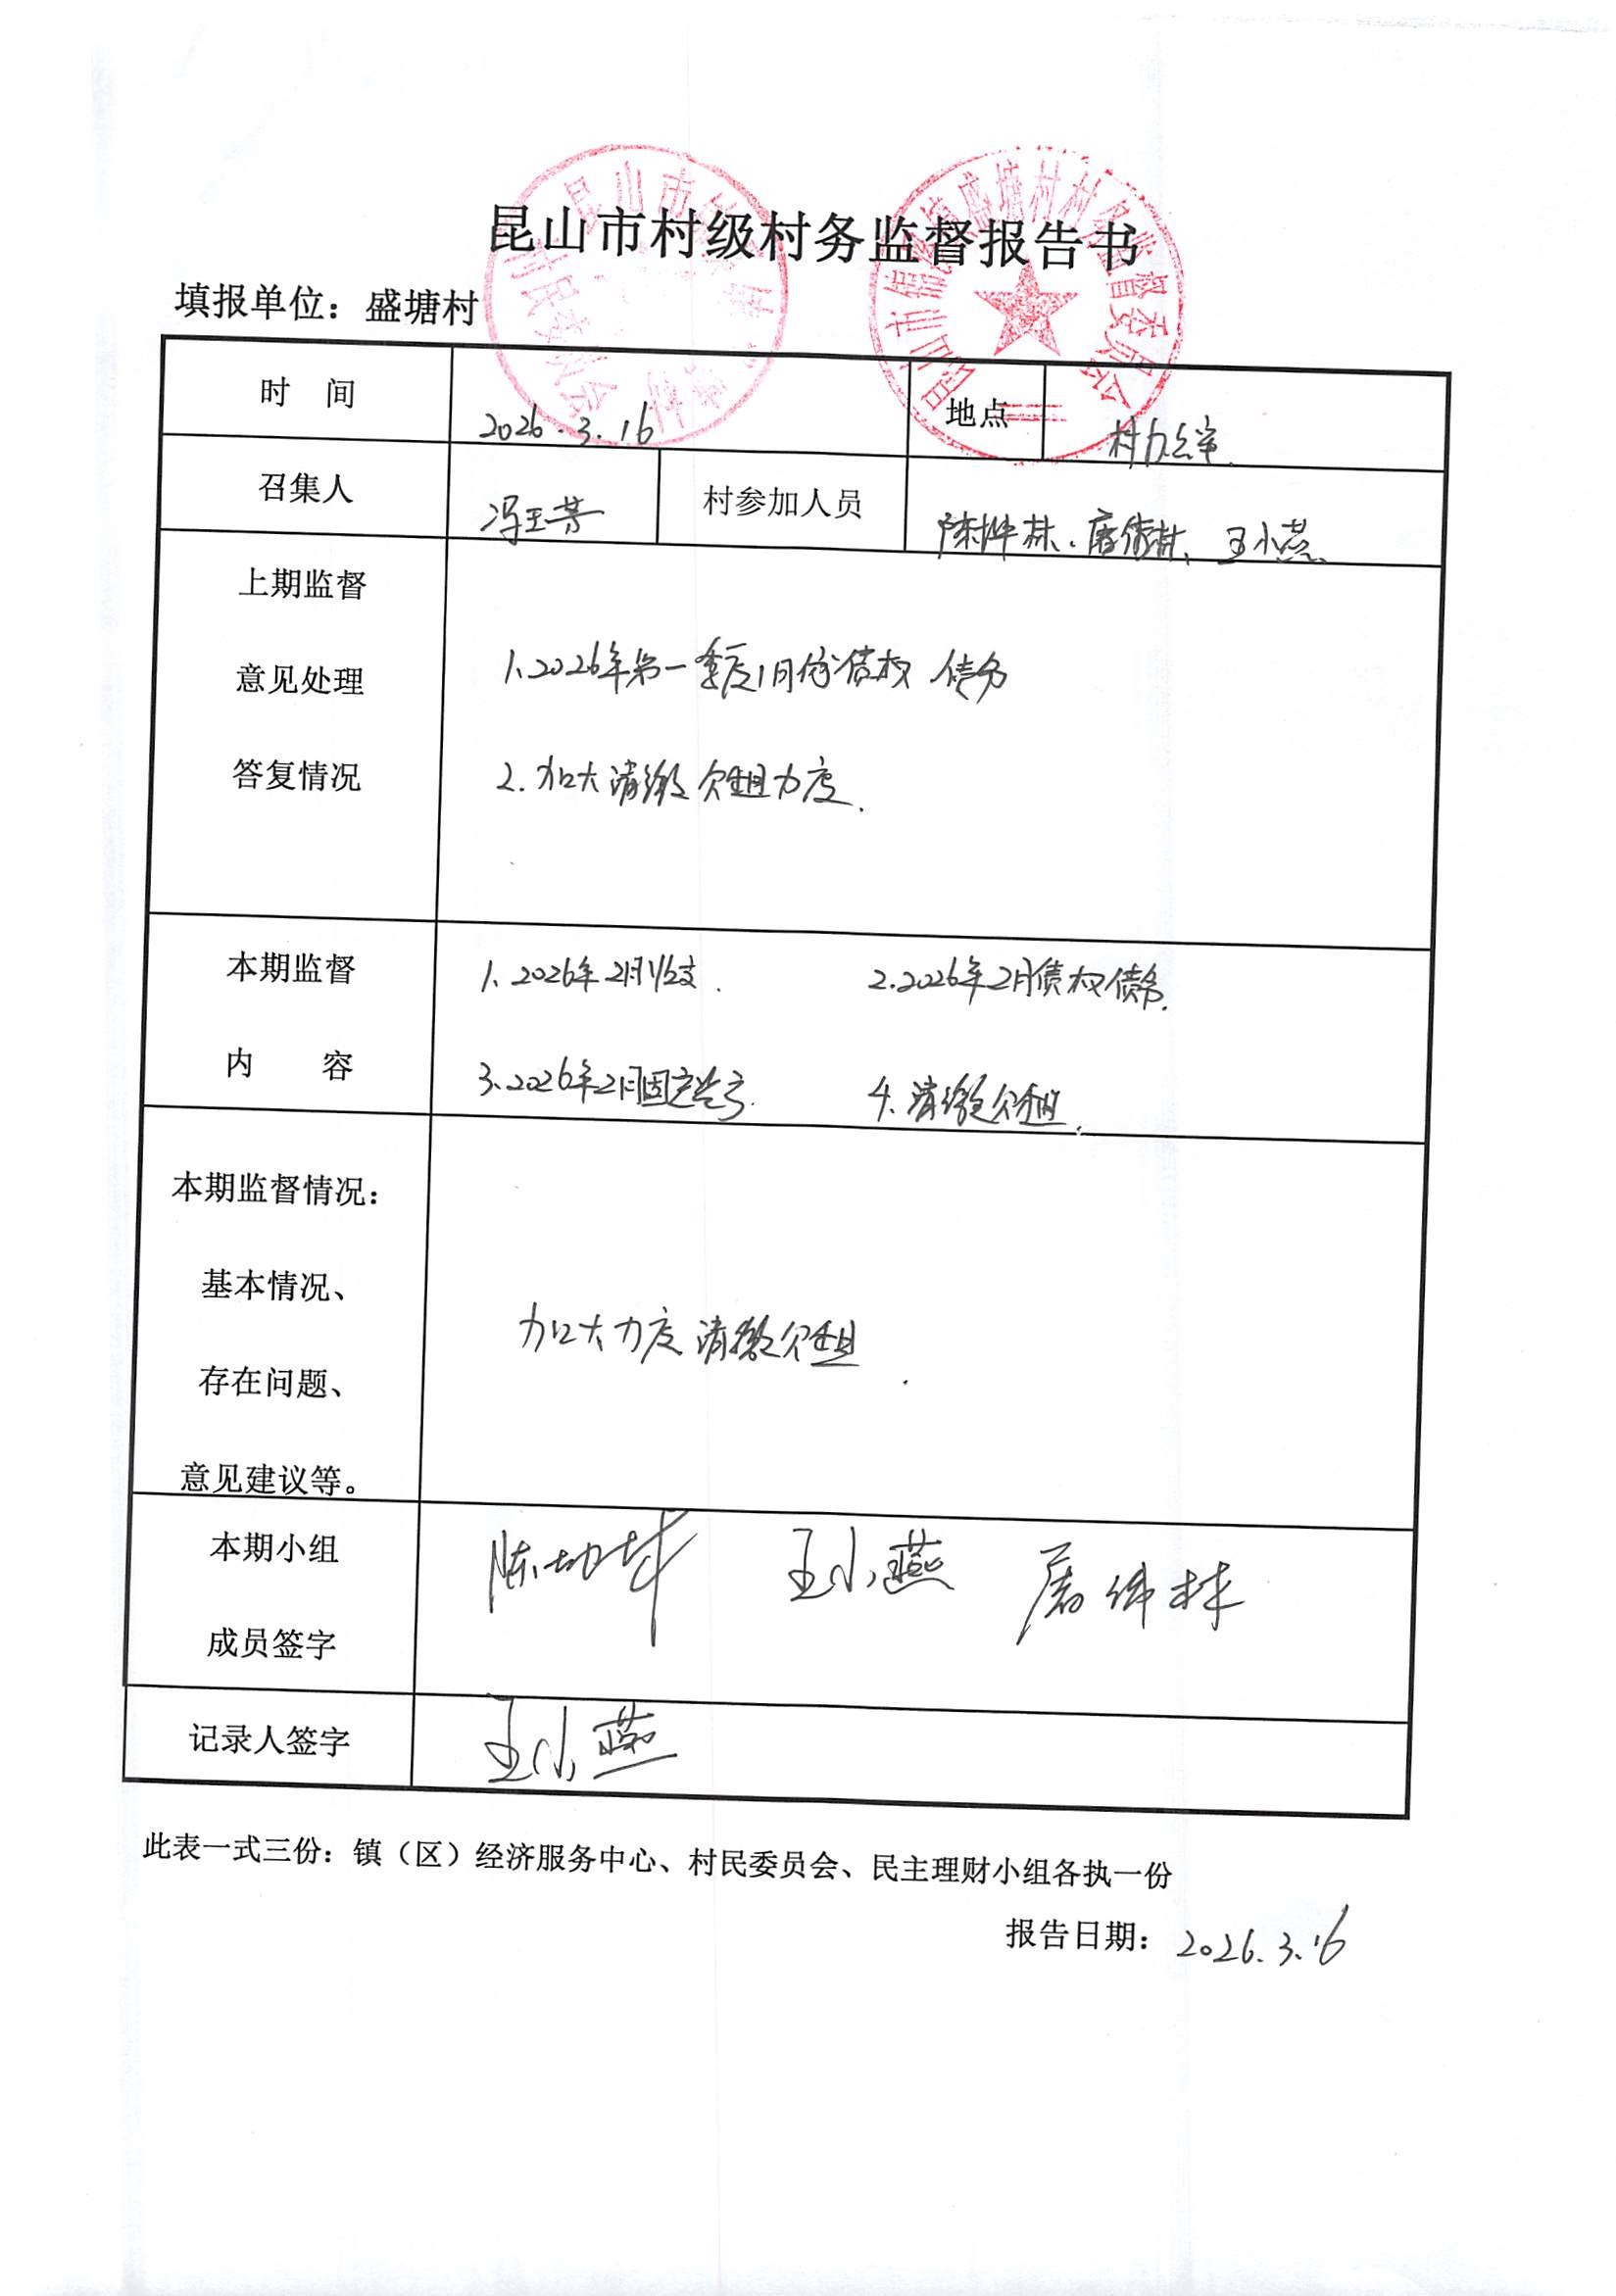 昆山市村级村务监督报告书
填报单位：盛塘村
时 间 2026.3.16 地点 村办公室.
召集人 冯玉芳 村参加人员 陈林、屠伟林、王小燕.
上期监督
意见处理
答复情况
1、2026年第一季度1月份债权 债务
2.加大清缴欠租力度.
本期监督
内 容
1、2026年2月收支. 2.2026年2月债权债务.
3、2026年2月固定资产. 4.清缴欠租.
本期监督情况：
基本情况、
存在问题、
意见建议等。
加大力度清缴欠租.
本期小组
成员签字
陈 王小燕 屠伟林
记录人签字 王小燕
此表一式三份：镇（区）经济服务中心、村民委员会、民主理财小组各执一份
报告日期：2026.3.16
昆山市锦溪镇盛塘村村务监督委员会
昆山市 村民委员会